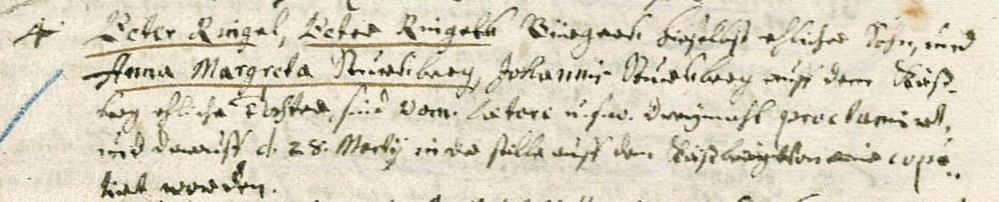 4 Peter Ringel, Peter Ringels Bürgers hieselbst ehlicher Sohn, und
Anna Margreta Stursberg, Johannis Stursberg auff dem
berg ehliche Tochter, sind Dom. Laetare u.s.w. dreymahl proclamiret,
und darauff d. 28. Martij in der stille auff dem copu
liret worden.